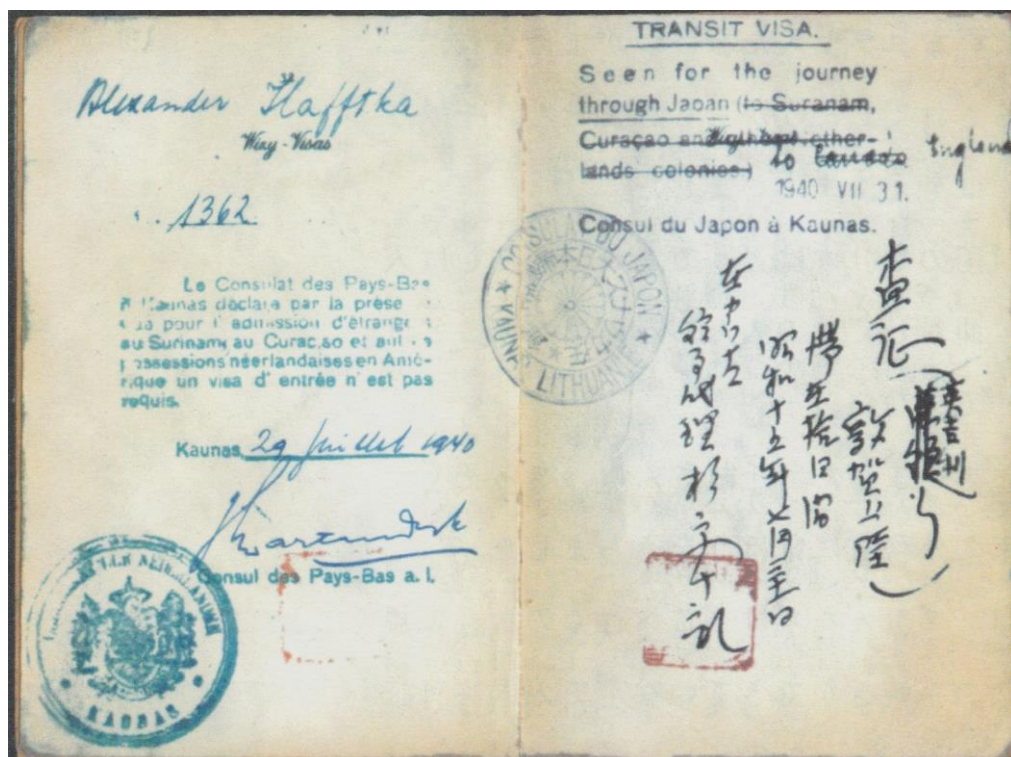 Alexander Hafftka
Wizy - Visas
1362
Le Consulat des Pays-Bas
à Kaunas déclare par la présente
que pour l'admission d'étrangers
au Surinam, au Curaçao et autres
possessions néerlandaises en Amé-
rique un visa d'entrée n'est pas
requis.
Kaunas, 29 Juillet 1940
Consul des Pays-Bas a. I.
KAUNAS
TRANSIT VISA.
Seen for the journey
through Japan (to Suranam,
Curaçao and other
lands colonies.) to Canada England
1940 VII 31.
Consul du Japon à Kaunas.
CONSULAT DU JAPON
KAUNAS LITHUANIE
査証
敦賀上陸
滞在拾日間
昭和十五年七月
在カウナス
領事代理 杉原千畝